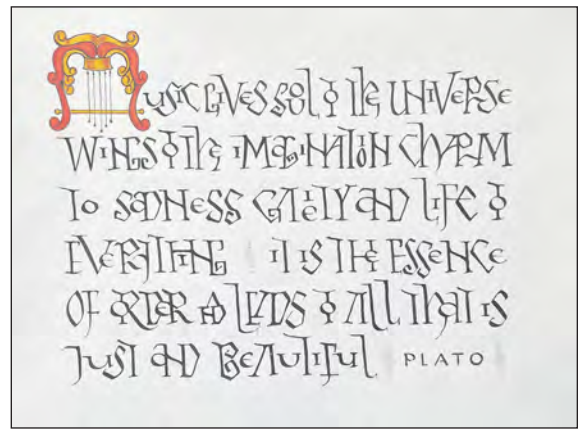 MUSIC GIVES SOUL TO THE UNIVERSE
WINGS TO THE IMAGINATION CHARM
TO SADNESS GAIETY AND LIFE TO
EVERYTHING IT IS THE ESSENCE
OF ORDER AND LEADS TO ALL THAT IS
JUST AND BEAUTIFUL PLATO